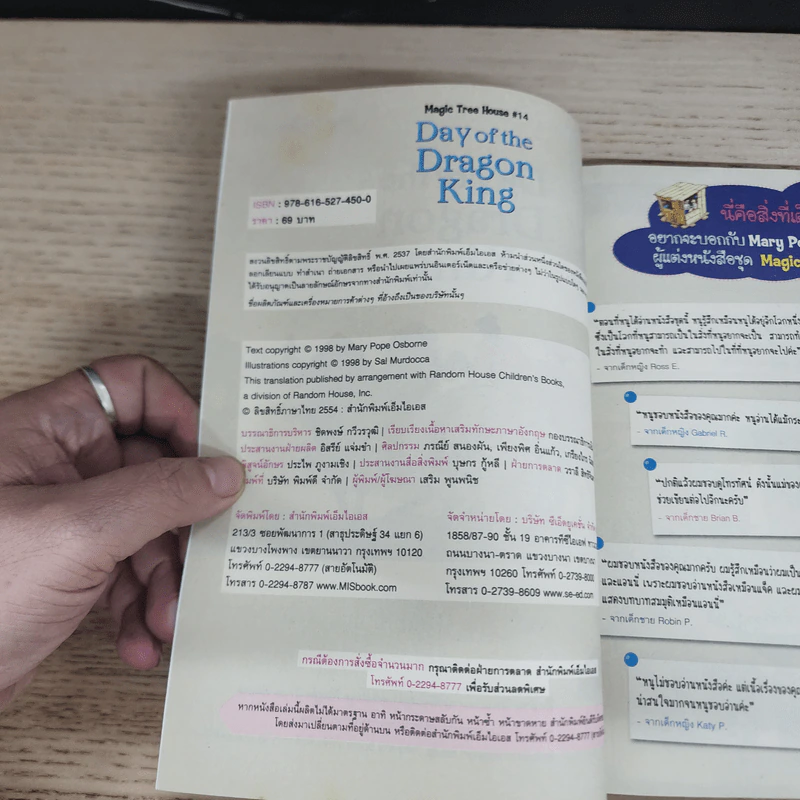 Magic Tree House #14
Day of the
Dragon
King
ISBN : 978-616-527-450-0
ราคา : 69 บาท
สงวนลิขสิทธิ์ตามพระราชบัญญัติลิขสิทธิ์ พ.ศ. 2537 โดยสำนักพิมพ์เอ็มไอเอส ห้ามนำส่วนหนึ่งส่วนใดของหนังสือ
ลอกเลียนแบบ ทำสำเนา ถ่ายเอกสาร หรือนำไปเผยแพร่บนอินเตอร์เน็ตและเครือข่ายต่างๆ ไม่ว่าในรูปแบบใด
ได้รับอนุญาตเป็นลายลักษณ์อักษรจากทางสำนักพิมพ์เท่านั้น
ชื่อผลิตภัณฑ์และเครื่องหมายการค้าต่างๆ ที่อ้างถึงเป็นของบริษัทนั้นๆ
Text copyright © 1998 by Mary Pope Osborne
Illustrations copyright © 1998 by Sal Murdocca
This translation published by arrangement with Random House Children's Books,
a division of Random House, Inc.
© ลิขสิทธิ์ภาษาไทย 2554 : สำนักพิมพ์เอ็มไอเอส
บรรณาธิการบริหาร ชิดพงษ์ กวีวรวุฒิ | เรียบเรียงเนื้อหาเสริมทักษะภาษาอังกฤษ กองบรรณาธิการ
ประสานงานฝ่ายผลิต อิสรีย์ แจ่มขำ | ศิลปกรรม ภรณีย์ สนองผัน, เพียงพิศ อิ่นแก้ว,
พิสูจน์อักษร ประไพ ภูงามเชิง | ประสานงานสื่อสิ่งพิมพ์ บุษกร กู้หลี | ฝ่ายการตลาด วราลี
พิมพ์ที่ บริษัท พิมพ์ดี จำกัด | ผู้พิมพ์/ผู้โฆษณา เสริม พูนพนิช
จัดพิมพ์โดย : สำนักพิมพ์เอ็มไอเอส
213/3 ซอยพัฒนาการ 1 (สาธุประดิษฐ์ 34 แยก 6)
แขวงบางโพงพาง เขตยานนาวา กรุงเทพฯ 10120
โทรศัพท์ 0-2294-8777 (สายอัตโนมัติ)
โทรสาร 0-2294-8787 www.MISbook.com
จัดจำหน่ายโดย : บริษัท ซีเอ็ดยูเคชั่น
1858/87-90 ชั้น 19 อาคารทีซีไอเอฟ
ถนนบางนา-ตราด แขวงบางนา เขตบางนา
กรุงเทพฯ 10260 โทรศัพท์ 0-2739-8000
โทรสาร 0-2739-8609 www.se-ed.com
กรณีต้องการสั่งซื้อจำนวนมาก กรุณาติดต่อฝ่ายการตลาด สำนักพิมพ์เอ็มไอเอส
โทรศัพท์ 0-2294-8777 เพื่อรับส่วนลดพิเศษ
หากหนังสือเล่มนี้ผลิตไม่ได้มาตรฐาน อาทิ หน้ากระดาษสลับกัน หน้าซ้ำ หน้าขาดหาย สำนักพิมพ์ยินดี
โดยส่งมาเปลี่ยนตามที่อยู่ด้านบน หรือติดต่อสำนักพิมพ์เอ็มไอเอส โทรศัพท์ 0-2294-8777
นี่คือสิ่งที่
อยากจะบอกกับ Mary
ผู้แต่งหนังสือชุด Magic
"ตอนที่หนูได้อ่านหนังสือชุดนี้ หนูรู้สึกเหมือนหนูได้อยู่อีกโลกหนึ่ง
ซึ่งเป็นโลกที่หนูสามารถเป็นในสิ่งที่หนูอยากจะเป็น สามารถทำ
ในสิ่งที่หนูอยากจะทำ และสามารถไปในที่ที่หนูอยากจะไปค่ะ"
- จากเด็กหญิง Ross E.
"หนูชอบหนังสือของคุณมากค่ะ หนูอ่านได้แม้
- จากเด็กหญิง Gabriel R.
"ปกติแล้วผมชอบดูโทรทัศน์ ดังนั้นแม่ของ
ช่วยเขียนต่อไปอีกนะครับ"
- จากเด็กชาย Brian B.
"ผมชอบหนังสือของคุณมากครับ ผมรู้สึกเหมือนว่าผมเป็น
และแอนนี่ เพราะผมชอบอ่านหนังสือเหมือนแจ็ค และ
แสดงบทบาทสมมุติเหมือนแอนนี่"
- จากเด็กชาย Robin P.
"หนูไม่ชอบอ่านหนังสือค่ะ แต่เนื้อเรื่องของ
น่าสนใจมากจนหนูชอบอ่านค่ะ"
- จากเด็กหญิง Katy P.